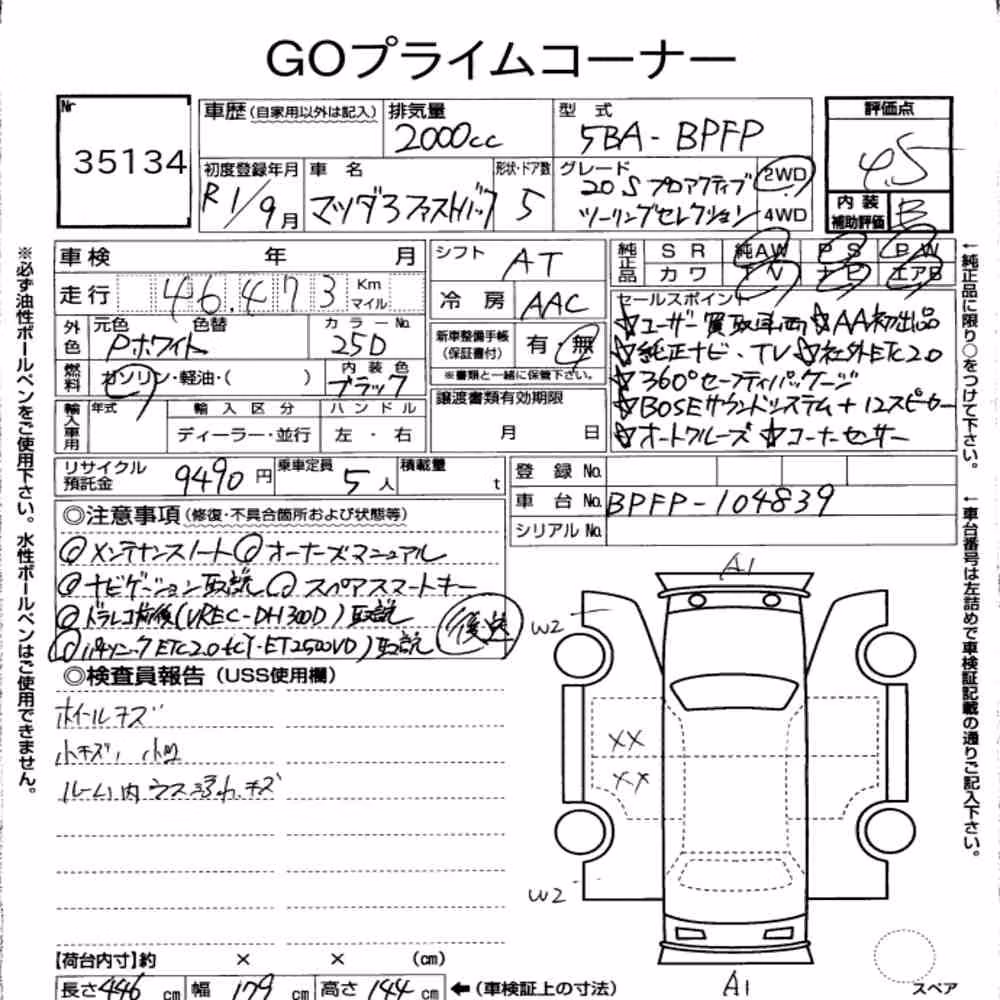 GOプライムコーナー
Nr
35134
車歴(自家用以外は記入)
排気量
2000cc
型 式
5BA-BPFP
評価点
4.5
初度登録年月
R1/9月
車 名
マツダ3ファストバック
形状・ドア数
5
グレード
20Sプロアクティブ
ツーリングセレクション
2WD
4WD
内 装
補助評価
B
車 検 年 月
走 行 46,473 Km
マイル
シフト
AT
冷 房 AAC
純正品 SR 純AW PS PW
カワ TV ナビ エアB
外色 元色 色替
Pホワイト
カラーNo.
25D
燃料 ガソリン・軽油・( )
内装色
ブラック
新車整備手帳
(保証書付)
有・無
※書類と一緒に保管下さい。
譲渡書類有効期限
月 日
セールスポイント
☆ユーザー買取車両 ☆AA初出品
☆純正ナビ・TV ☆社外ETC2.0
☆360°セーフティパッケージ
☆BOSEサウンドシステム+12スピーカー
☆オートクルーズ ☆コーナーセンサー
輸入車用 年式 輸入区分 ハンドル
ディーラー・並行 左・右
リサイクル
預託金
9490円
乗車定員
5人
積載量
t
登 録 No.
車 台 No. BPFP-104839
シリアル No.
◎注意事項(修復・不具合箇所および状態等)
◎メンテナンスノート◎オーナーズマニュアル
◎ナビゲーション取説◎スペアスマートキー
◎ドラレコ前後(VREC-DH300D)取説
◎パナソニックETC2.0(CY-ET2500VD)取説
後送
◎検査員報告(USS使用欄)
ホイールキズ
小キズ、小凹
ルーム内ウス汚れ、キズ
A1
W2
XX
XX
W2
A1
スペア
【荷台内寸】約 × × (cm)
長さ446cm 幅179cm 高さ144cm ←(車検証上の寸法)
※必ず油性ボールペンをご使用下さい。水性ボールペンはご使用できません。
←純正品に限り○をつけて下さい。
←車台番号は左詰めで車検証記載の通りご記入下さい。